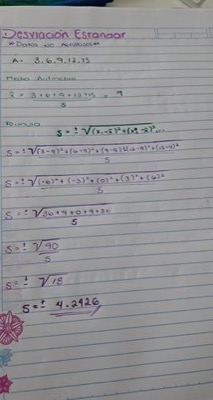 Desviación Estandar
* Datos No Agrupados *
A = 3, 6, 9, 12, 15
Media Aritmetica
x̄ = 3 + 6 + 9 + 12 + 15 = 9
5
Formula
S = ± √(x₁-x̄)² + (x₂-x̄)²...
S = ± √(3-9)² + (6-9)² + (9-9)² + (12-9)² + (15-9)²
5
S = ± √(-6)² + (-3)² + (0)² + (3)² + (6)²
5
S = ± √36+9+0+9+36
5
S = ± √90
5
S = ± √18
S = ± 4.2426